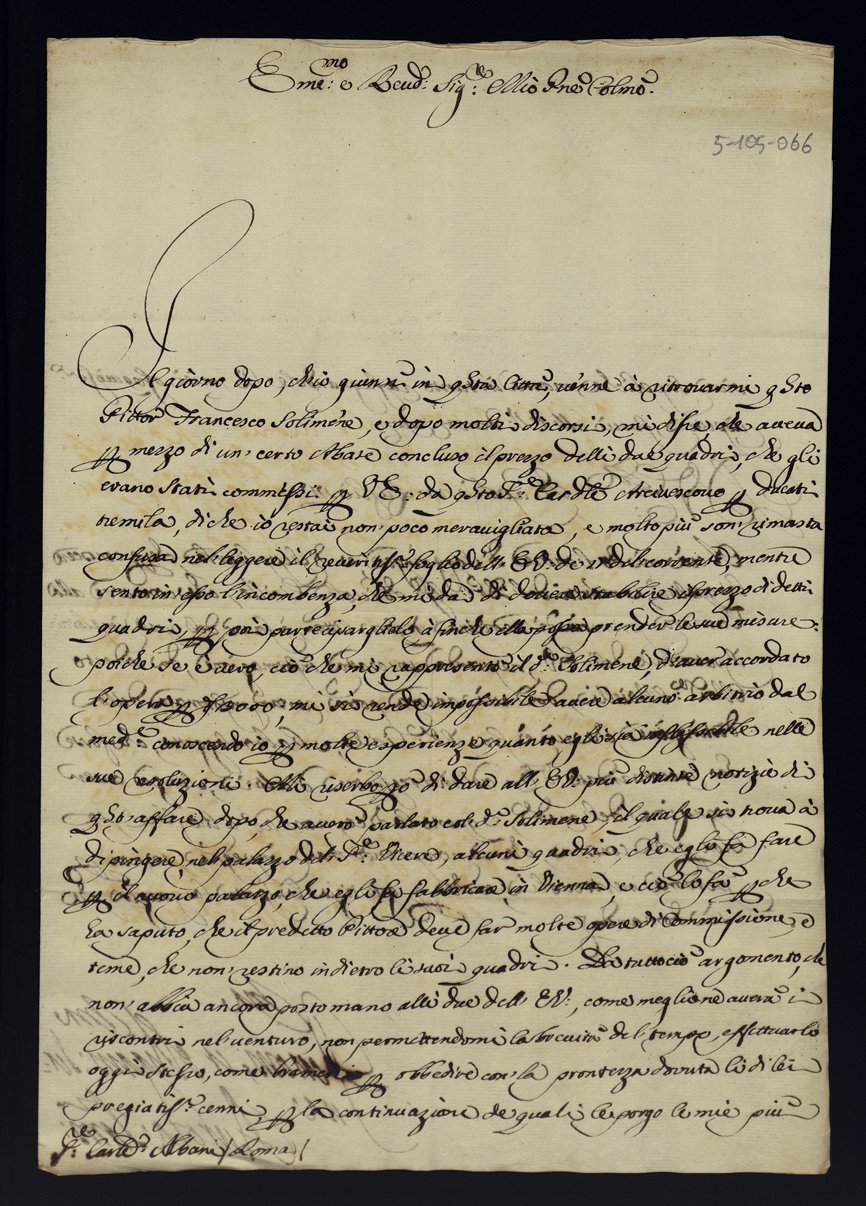 Em.mo e Revd: Sig.re Mio Pne Colmo.
5-105-066
Il giorno dopo, ch'io giunsi in q.sta Città, venne à ritrovarmi q.sto
Pittor Francesco Solimene, e dopo molti discorsi, mi disse, che aveva
per mezzo di un' certo Abate concluso il prezzo delli due quadri, che gli
erano stati commessi per V.E: da q.sto S.r Card.le Arcivescovo per ducati
tremila, di che io restai non' poco meravigliata, e molto più son' rimasta
confusa nel leggere il reveritiss.o foglio dell' E.V: de del corrente, mentre
sento in esso l'incombenza, che mi dà di dover stabilire il prezzo di detti
quadri, per poi parteciparglielo à finche ella possa prender le sue misure:
poiche se è vero, ciò che mi rappresentò il d.o Solimene, d'aver accordato
l'opera per 3000, mi si rende impossibile l'avere alcuno arbitrio dal
med.o conoscendo io per molte esperienze quanto egli sia inflessibile nelle
sue resoluzioni. Mi riserbo però di dare all' E.V: più distinte notizie di
q.sto affare dopo, che averò parlato col d.o Solimene, il quale si trova à
dipingere nel palazzo del S.r Vicere, alcuni quadri, che egli fà fare
per il nuovo palazzo, che egli fà fabbricare in Vienna, e ciò lo fà per che
hà saputo, che il predetto Pittore deve far molte opere di Commissione, e
teme, che non' restino indietro li suoi quadri. Da tutto ciò argomento, che
non' abbia ancora posto mano alli due dell' E.V:, come meglio ne averà i
riscontri nel venturo, non permettendomi la brevità del tempo, effettuarlo
oggi stesso, come bramerei per obbedire con' la prontezza dovuta li di lei
pregiatiss.i cenni per la continuazione de quali le porgo le mie più
S.re Card.e Albani / Roma /